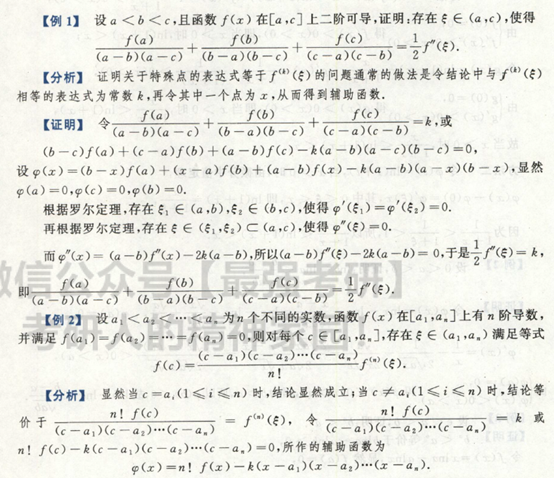 【例1】 设 a<b<c,且函数 f(x)在[a,c]上二阶可导,证明:存在 ξ∈(a,c),使得
f(a)/((a-b)(a-c)) + f(b)/((b-a)(b-c)) + f(c)/((c-a)(c-b)) = 1/2 f''(ξ).
【分析】 证明关于特殊点的表达式等于 f^(k)(ξ)的问题通常的做法是令结论中与 f^(k)(ξ)
相等的表达式为常数 k,再令其中一个点为 x,从而得到辅助函数.
【证明】 令 f(a)/((a-b)(a-c)) + f(b)/((b-a)(b-c)) + f(c)/((c-a)(c-b)) = k,或
(b-c)f(a)+(c-a)f(b)+(a-b)f(c)-k(a-b)(a-c)(b-c)=0,
设 φ(x)=(b-x)f(a)+(x-a)f(b)+(a-b)f(x)-k(a-b)(a-x)(b-x),显然
φ(a)=0,φ(c)=0,φ(b)=0.
根据罗尔定理,存在 ξ₁∈(a,b),ξ₂∈(b,c),使得 φ'(ξ₁)=φ'(ξ₂)=0.
再根据罗尔定理,存在 ξ∈(ξ₁,ξ₂)⊂(a,c),使得 φ''(ξ)=0.
而 φ''(x)=(a-b)f''(x)-2k(a-b),所以(a-b)f''(ξ)-2k(a-b)=0,于是 1/2 f''(ξ)=k,
即 f(a)/((a-b)(a-c)) + f(b)/((b-a)(b-c)) + f(c)/((c-a)(c-b)) = 1/2 f''(ξ).
微信公众号【最强考研】
考研人的精神家园!
【例2】 设 a₁<a₂<⋯<aₙ 为 n 个不同的实数,函数 f(x)在[a₁,aₙ]上有 n 阶导数,
并满足 f(a₁)=f(a₂)=⋯=f(aₙ)=0,则对每个 c∈[a₁,aₙ],存在 ξ∈(a₁,aₙ)满足等式
f(c)=((c-a₁)(c-a₂)⋯(c-aₙ))/n! f^(n)(ξ).
【分析】 显然当 c=aᵢ(1≤i≤n)时,结论显然成立;当 c≠aᵢ(1≤i≤n)时,结论等
价于 n! f(c)/((c-a₁)(c-a₂)⋯(c-aₙ)) = f^(n)(ξ), 令 n! f(c)/((c-a₁)(c-a₂)⋯(c-aₙ)) = k 或
n! f(c)-k(c-a₁)(c-a₂)⋯(c-aₙ)=0,所作的辅助函数为
φ(x)=n! f(x)-k(x-a₁)(x-a₂)⋯(x-aₙ).